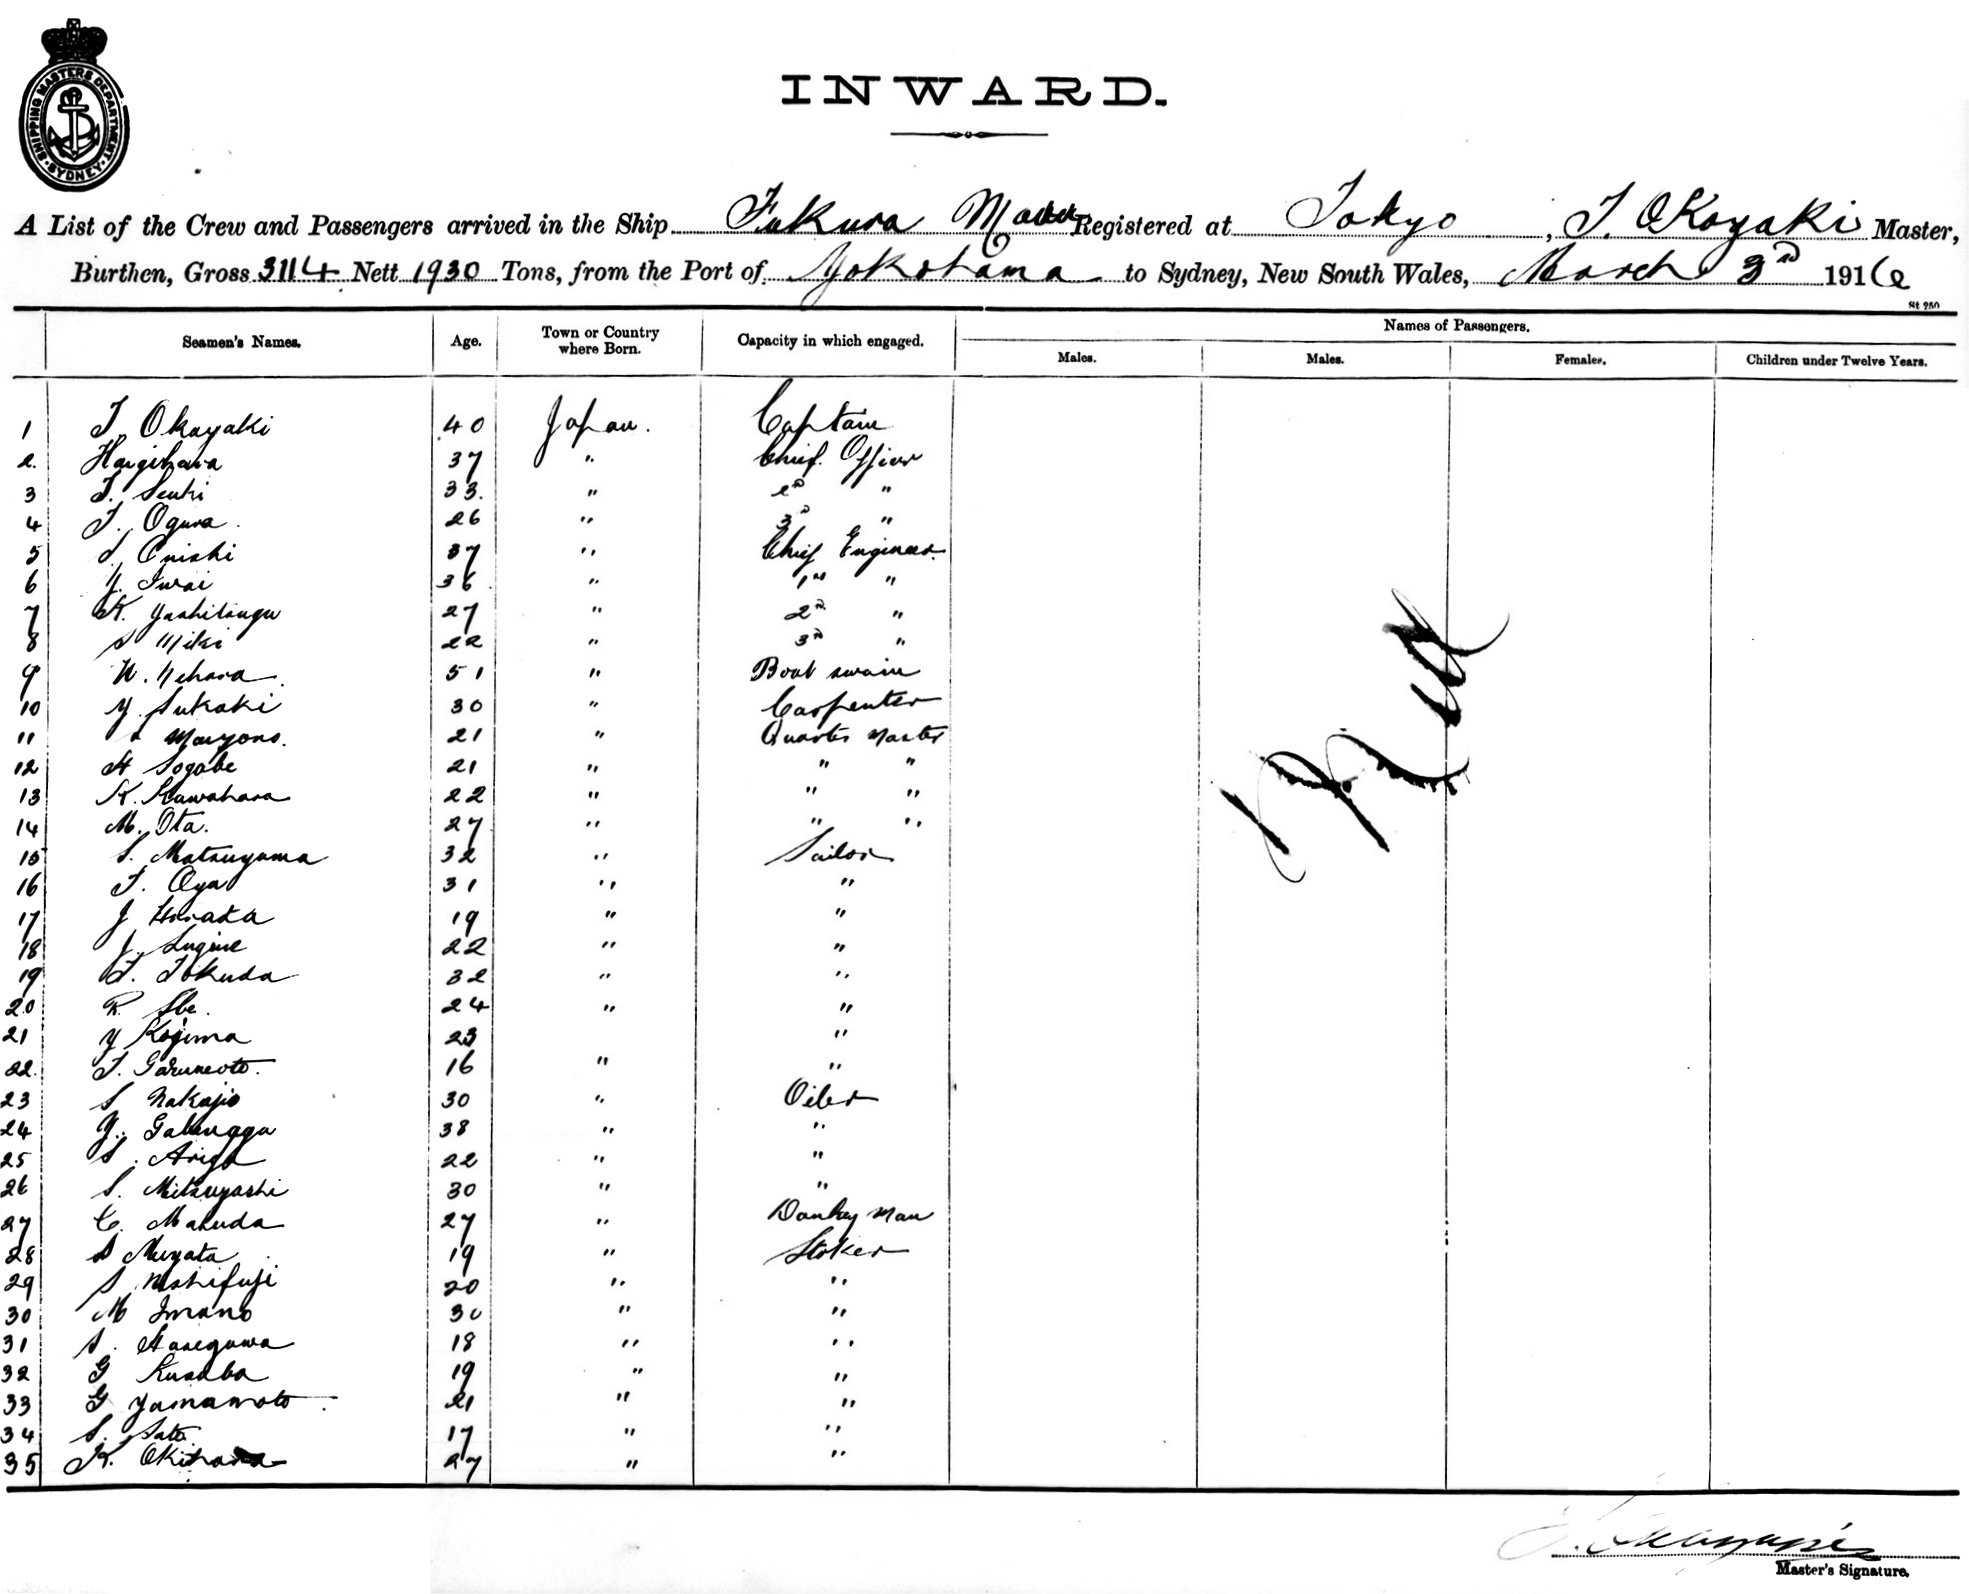 SHIPPING MASTERS DEPARTMENT · SYDNEY ·
INWARD.
A List of the Crew and Passengers arrived in the Ship Fukura Maru Registered at Tokyo, T. Okayaki Master,
Burthen, Gross 3114 Nett 1930 Tons, from the Port of Yokohama to Sydney, New South Wales, March 3rd 1916
St 250
Seamen's Names. Age. Town or Country where Born. Capacity in which engaged. Names of Passengers.
Males. Males. Females. Children under Twelve Years.
1 T. Okayaki 40 Japan. Captain
2. Hagihara 37 " Chief Officer
3 T. Seuki 33. " 2nd "
4 T. Ogura. 26 " 3rd "
5 S. Onishi 37 " Chief Engineer.
6 Y. Iwai 36 " 1st "
7 K. Yoshitsugu 27 " 2nd "
8 S Miki 22 " 3rd "
9 U. Uehara. 51 " Boat swain
10 Y. Sukaki 30 " Carpenter
11 21 " Quarter Master
12 H Sogabe 21 " " "
13 K. Kawahara 22 " " "
14 M. Ota. 27 " " "
15 S. Matsuyama 32 " Sailor
16 T. Oya 31 " "
17 J Harada 19 " "
18 J. Sugine 22 " "
19 T. Tokuda 32 " "
20 R. Abe. 24 " "
21 Y Kojima 23 "
22. T. 16 " "
23 S Nakajio 30 " Oiler
24 Y. 38 " "
25 S. Ariga 22 " "
26 S. Mitsuyashi 30 " "
27 C. Masuda 27 " Donkey Man
28 S Muyata 19 " Stoker
29 S Nishifuji 20 " "
30 M Imano 30 " "
31 S. Hasegawa 18 " "
32 G Kusaba 19 " "
33 G Yamamoto. 21 " "
34 S. Sato 17 " "
35 K. Okihara 27 " "
Nil
Master's Signature.